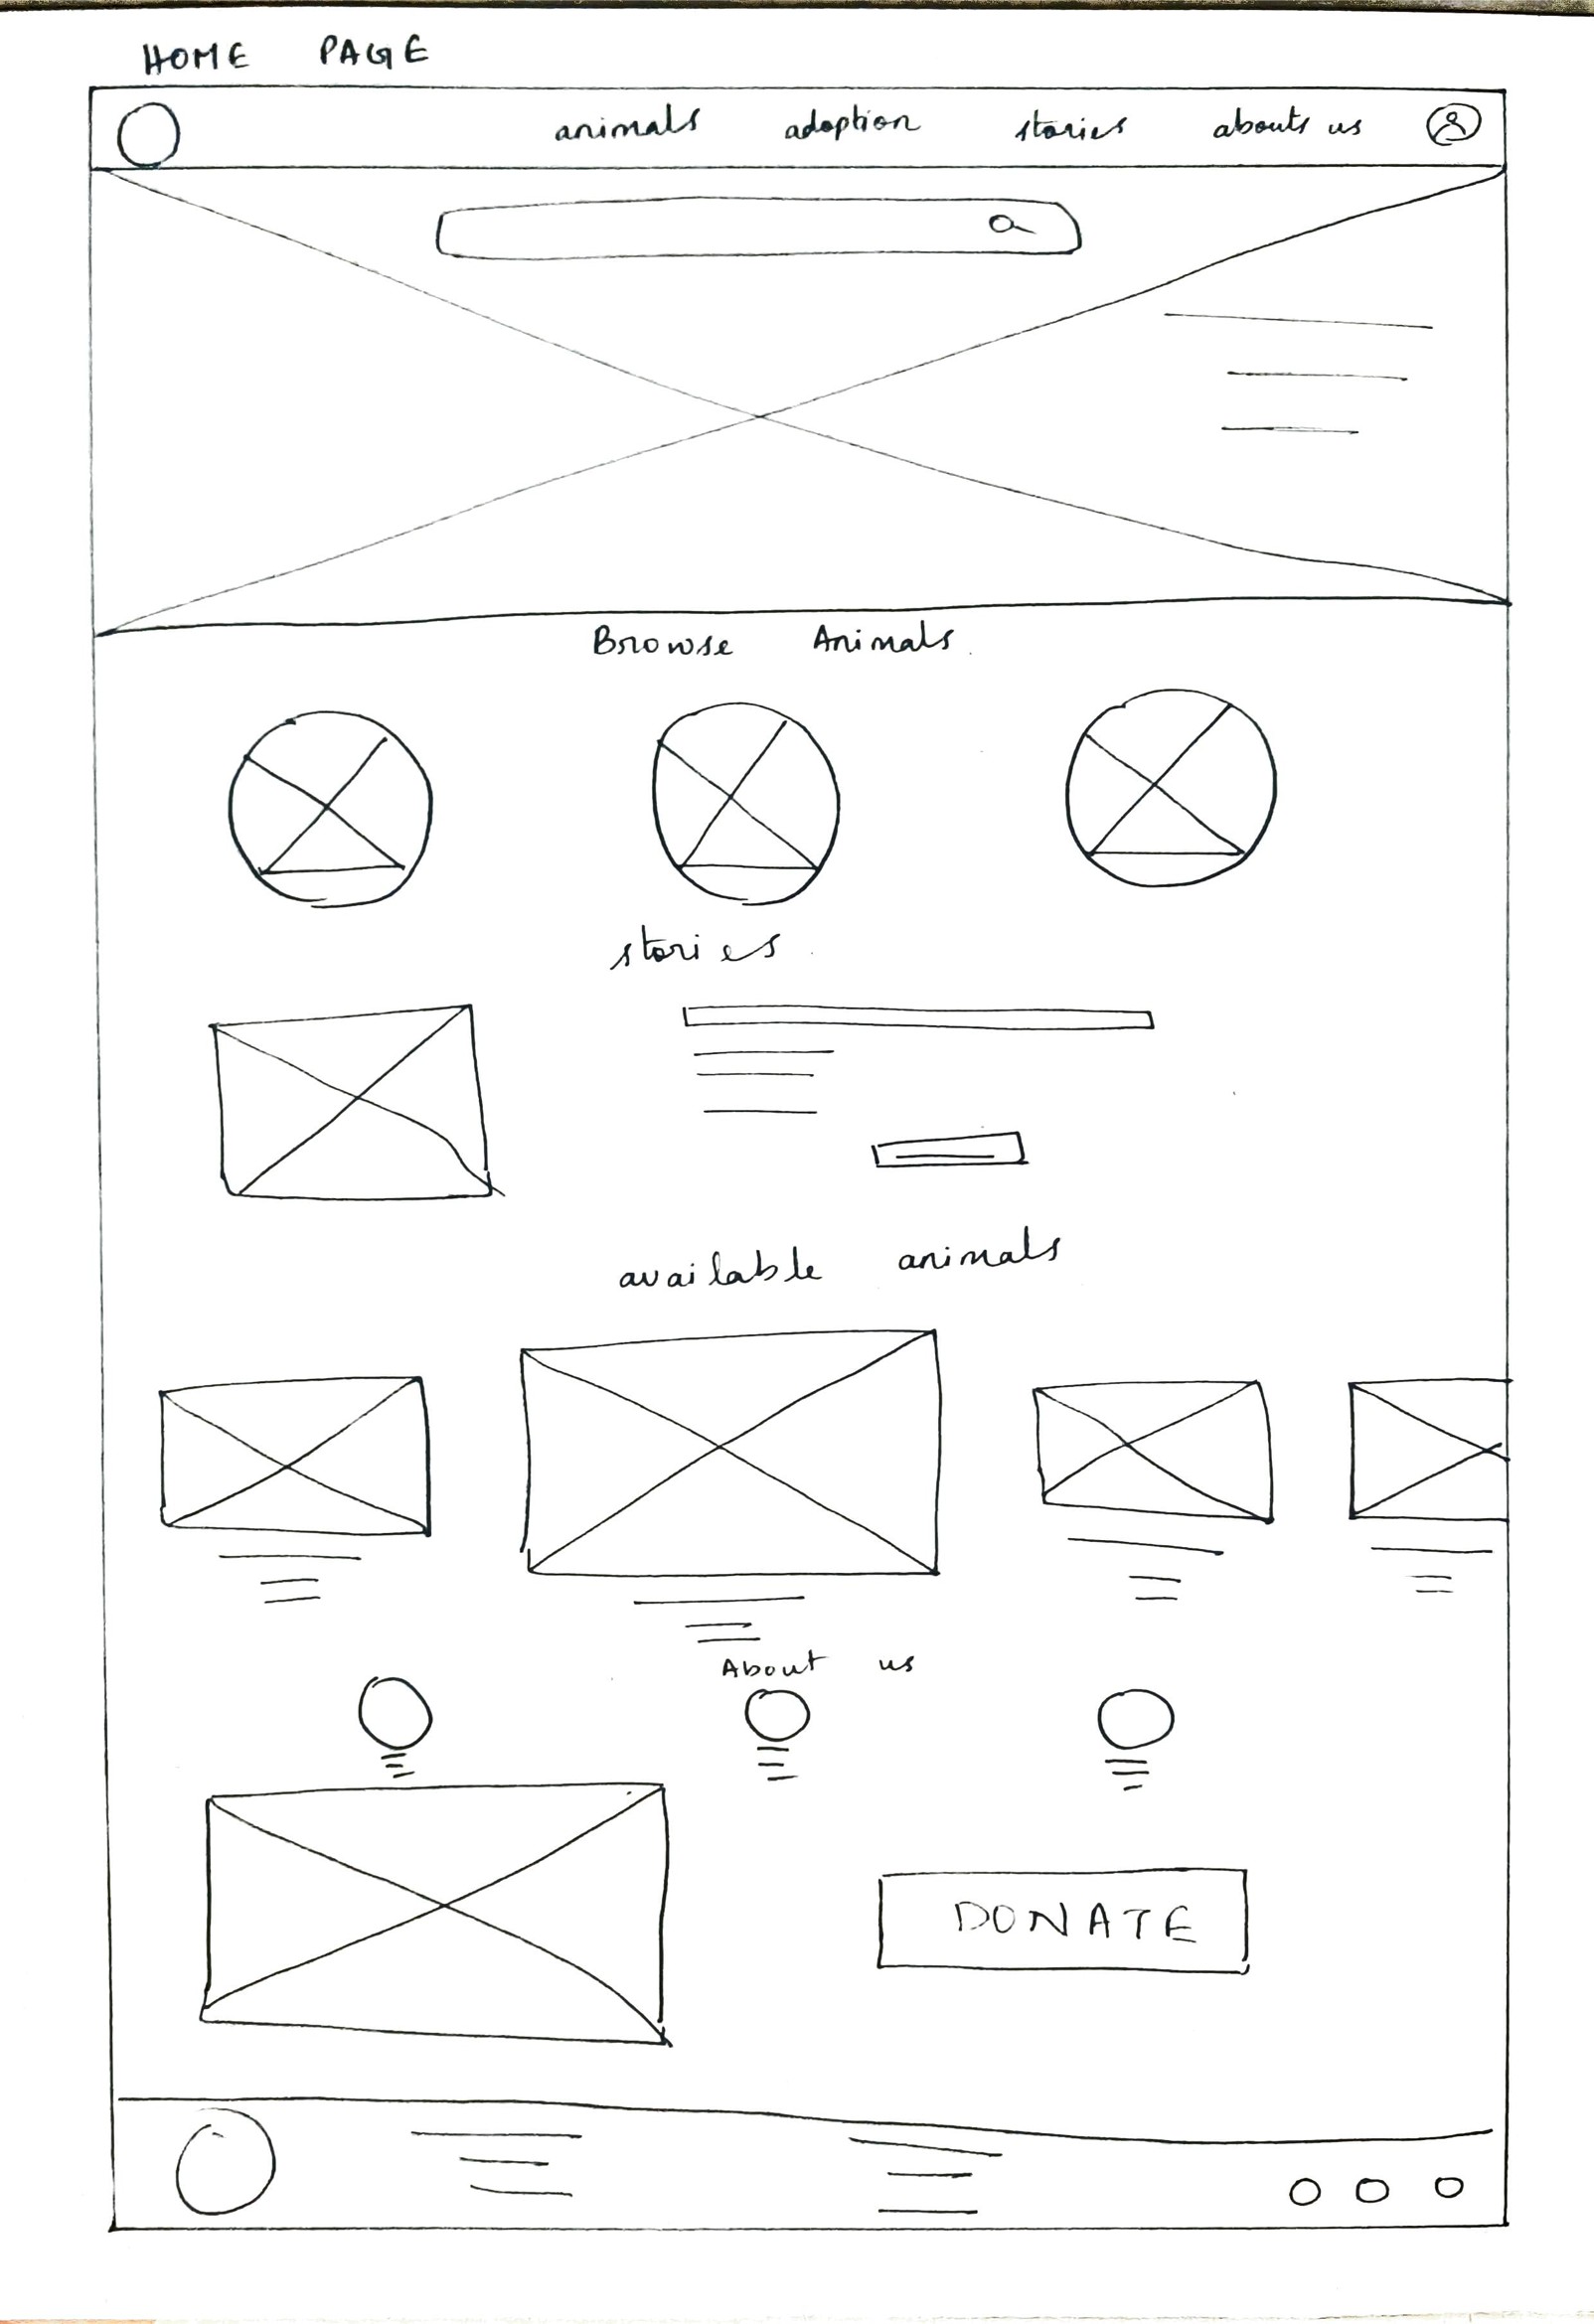 HOME PAGE
animals adoption stories abouts us
Browse Animals
stories
available animals
About us
DONATE